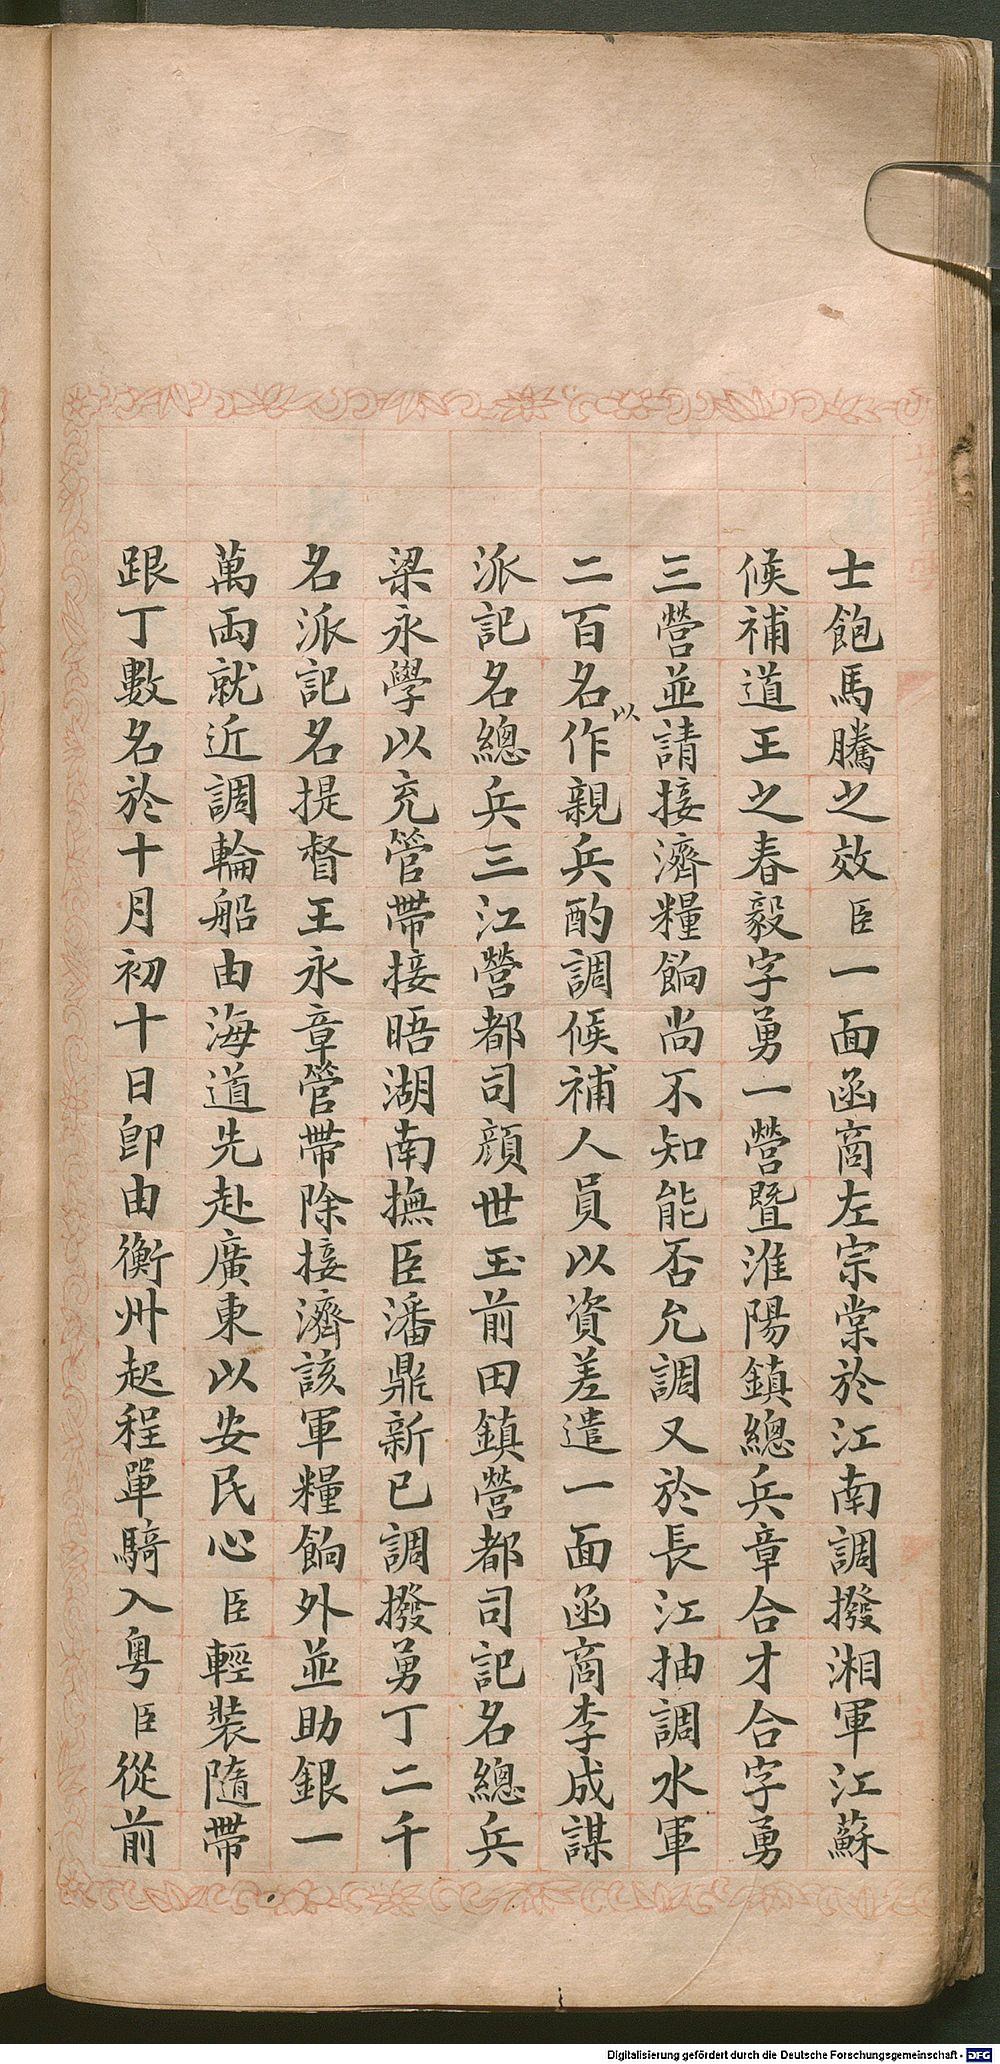 士飽馬騰之效臣一面函商左宗棠於江南調撥湘軍江蘇
候補道王之春毅字勇一營暨淮陽鎮總兵章合才合字勇
三營並請接濟糧餉尚不知能否允調又於長江抽調水軍
二百名以作親兵酌調候補人員以資差遣一面函商李成謀
派記名總兵三江營都司顔世玉前田鎮營都司記名總兵
梁永學以充管帶接晤湖南撫臣潘鼎新已調撥勇丁二千
名派記名提督王永章管帶除接濟該軍糧餉外並助銀一
萬両就近調輪船由海道先赴廣東以安民心臣輕裝隨帶
跟丁數名於十月初十日卽由衡州起程單騎入粵臣從前
Digitalisierung gefördert durch die Deutsche Forschungsgemeinschaft - DFG